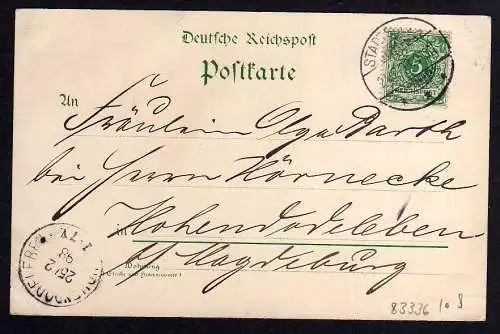 Deutsche Reichspost
Postkarte
STAD
5
An
Fräulein Olga Barth
bei Herrn Hörnecke
in Hohendodeleben
b/ Magdeburg
Wohnung
(Straße und Hausnummer)
25/2
98
83336 10 9